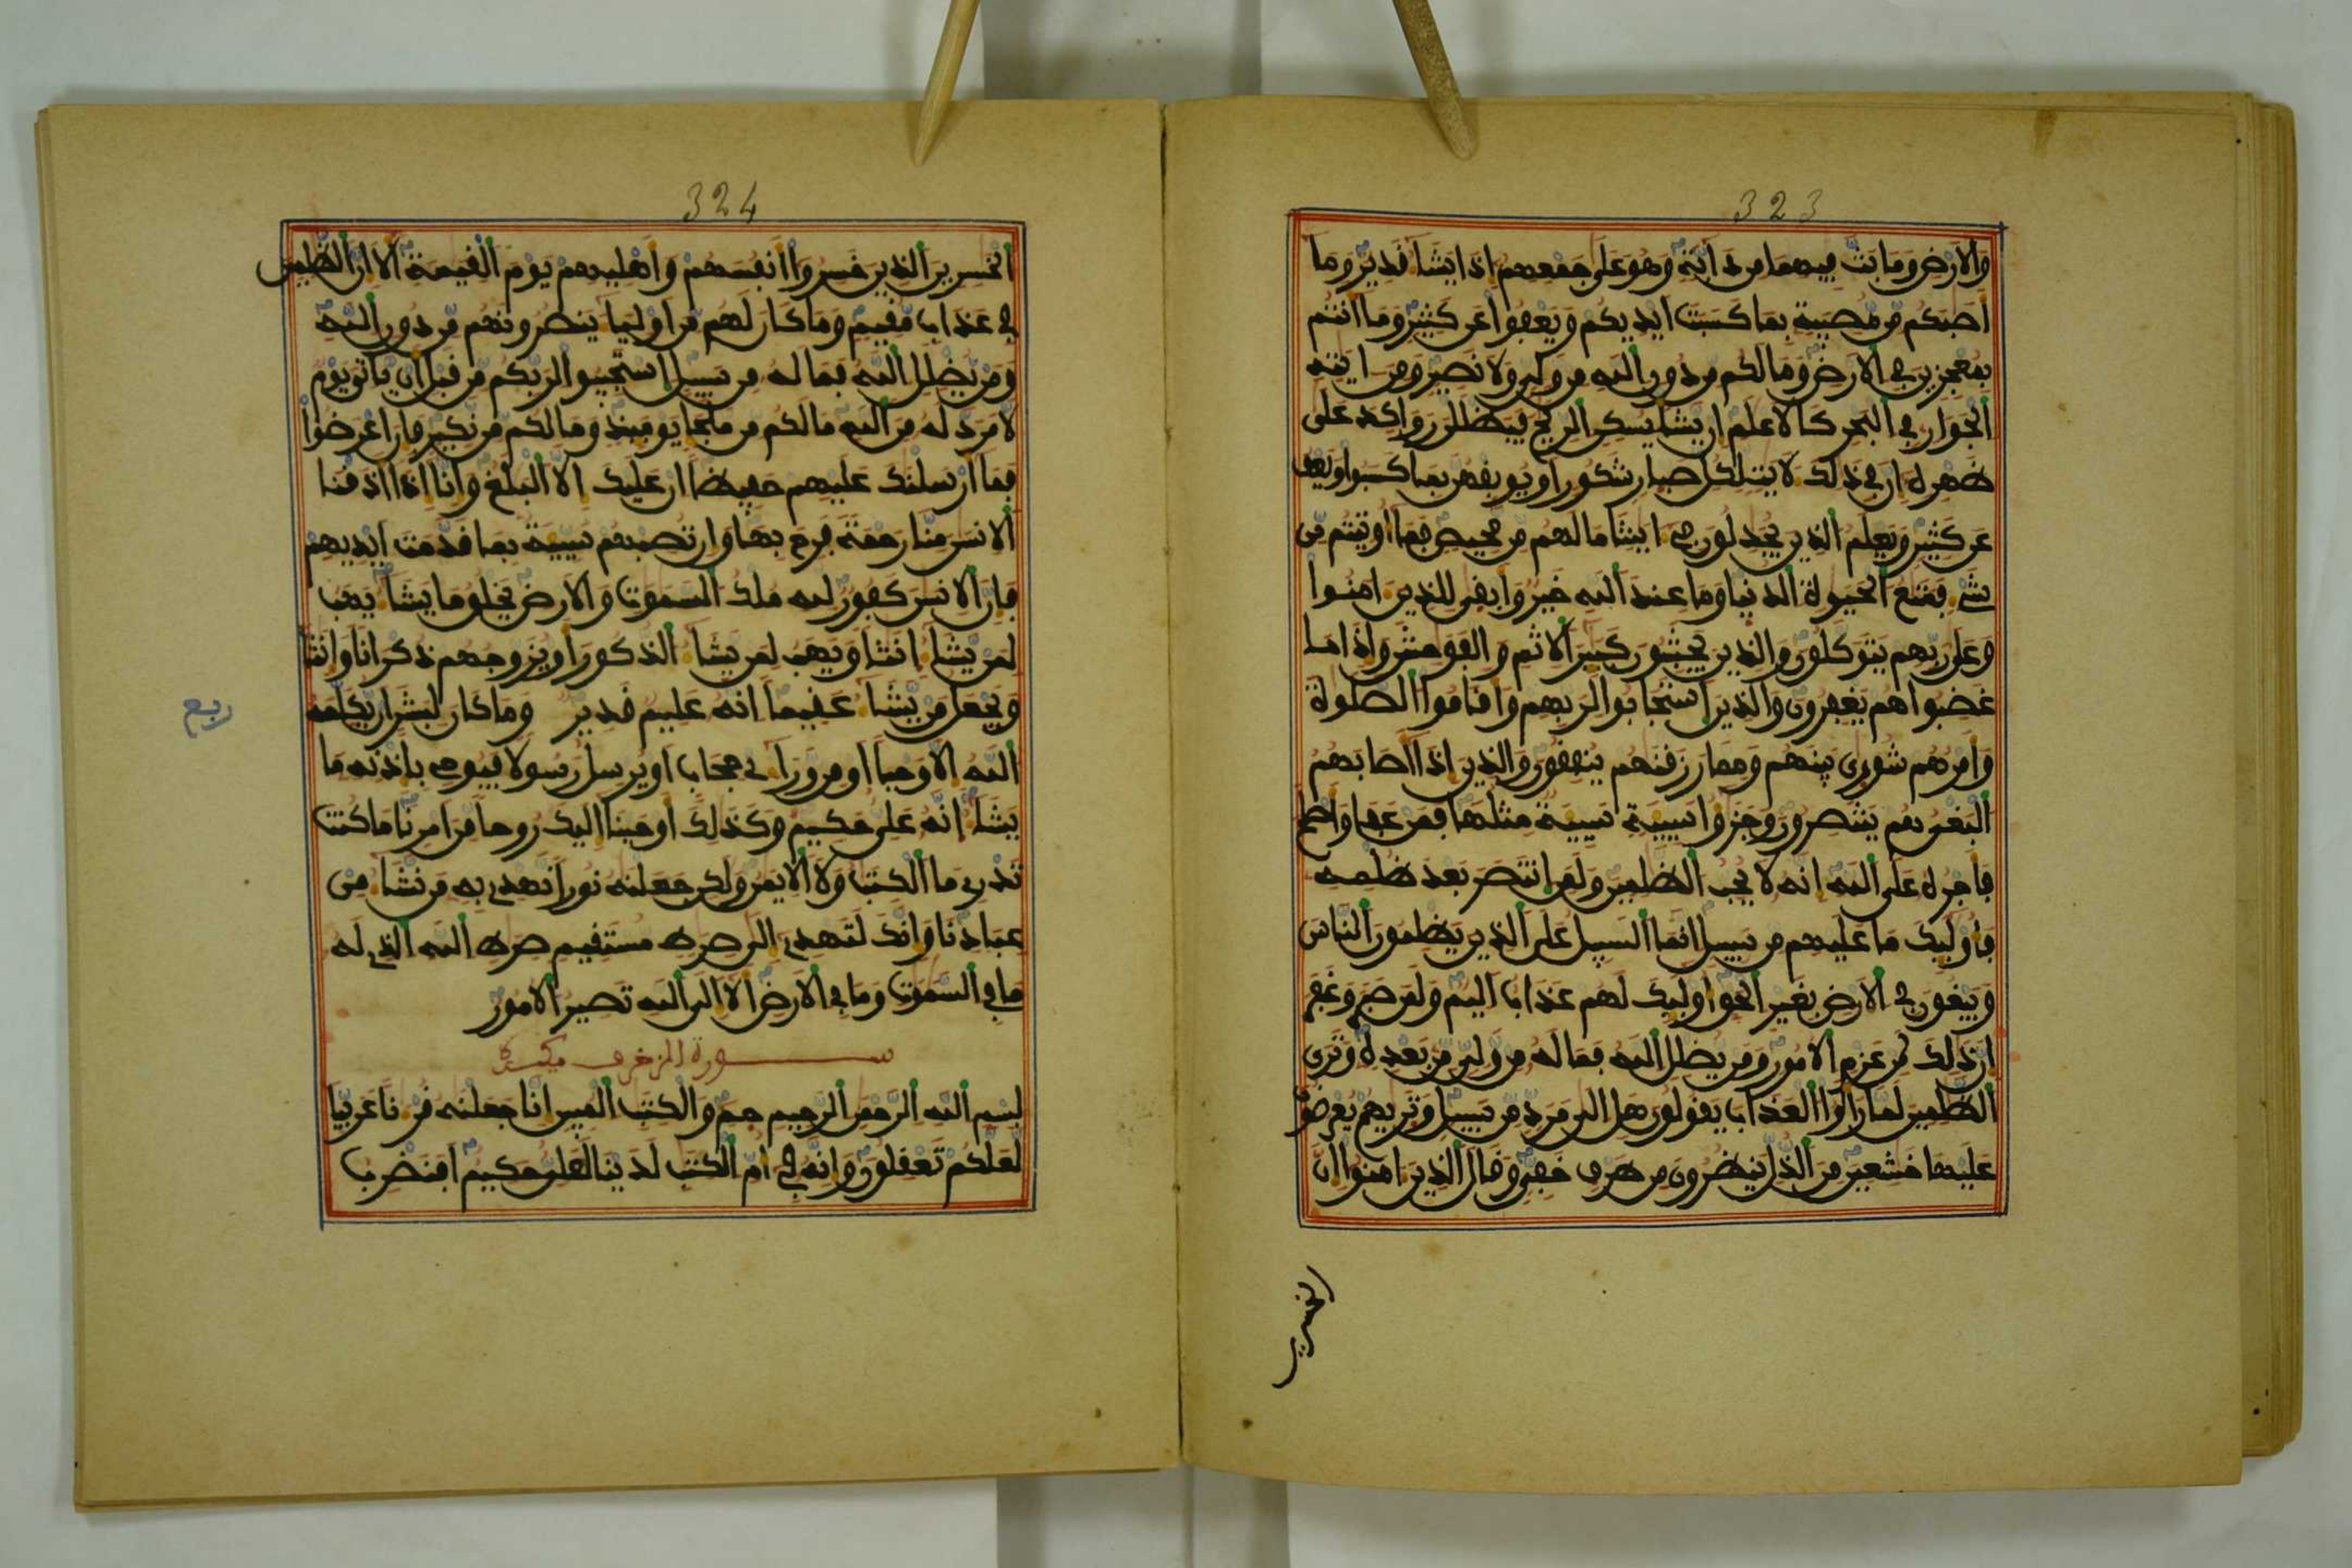 323
والارض وما بث فيهما من دابة وهو على جمعهم اذا يشا قدير وما
اصبكم من مصيبة بما كسبت ايديكم ويعفوا عن كثير وما انتم
بمعجزين في الارض وما لكم من دون الله من ولي ولا نصير ومن ايته
الجوار في البحر كالاعلم ان يشا يسكن الريح فيظللن رواكد على
ظهره ان في ذلك لايت لكل صبار شكور او يوبقهن بما كسبوا ويعف
عن كثير ويعلم الذين يجدلون في ايتنا ما لهم من محيص فما اوتيتم من
شي فمتع الحيوة الدنيا وما عند الله خير وابقى للذين امنوا
وعلى ربهم يتوكلون والذين يجتنبون كبير الاثم والفوحش واذا ما
غضبوا هم يغفرون والذين استجابوا لربهم واقاموا الصلوة
وامرهم شورى بينهم ومما رزقنهم ينفقون والذين اذا اصابهم
البغي هم ينتصرون وجزوا سيية سيية مثلها فمن عفا واصلح
فاجره على الله انه لا يحب الظلمين ولمن انتصر بعد ظلمه
فاوليك ما عليهم من سبيل انما السبيل على الذين يظلمون الناس
ويبغون في الارض بغير الحق اوليك لهم عذاب اليم ولمن صبر وغفر
ان ذلك لمن عزم الامور ومن يضلل الله فما له من ولي من بعده وترى
الظلمين لما راوا العذاب يقولون هل الى مرد من سبيل وتريهم يعرضون
عليها خشعين من الذل ينظرون من طرف خفي وقال الذين امنوا ان
الخسرين
324
الخسرين الذين خسروا انفسهم واهليهم يوم القيمة الا ان الظلمين
في عذاب مقيم وما كان لهم من اوليا ينصرونهم من دون الله
ومن يضلل الله فما له من سبيل استجيبوا لربكم من قبل ان ياتي يوم
لا مرد له من الله ما لكم من ملجا يوميذ وما لكم من نكير فان اعرضوا
فما ارسلنك عليهم حفيظا ان عليك الا البلغ وانا اذا اذقنا
الانسن منا رحمة فرح بها وان تصبهم سيية بما قدمت ايديهم
فان الانسن كفور لله ملك السموت والارض يخلق ما يشا يهب
لمن يشا انثا ويهب لمن يشا الذكور او يزوجهم ذكرانا وانثا
ويجعل من يشا عقيما انه عليم قدير وما كان لبشر ان يكلمه
ربع
الله الا وحيا او من وراي حجاب او يرسل رسولا فيوحي باذنه ما
يشا انه علي حكيم وكذلك اوحينا اليك روحا من امرنا ما كنت
تدري ما الكتب ولا الايمن ولكن جعلنه نورا نهدي به من نشا من
عبادنا وانك لتهدي الى صرط مستقيم صرط الله الذي له
ما في السموت وما في الارض الا الى الله تصير الامور
سورة الزخرف مكية
بسم الله الرحمن الرحيم حم والكتب المبين انا جعلنه قرنا عربيا
لعلكم تعقلون وانه في ام الكتب لدينا لعلي حكيم افنضرب